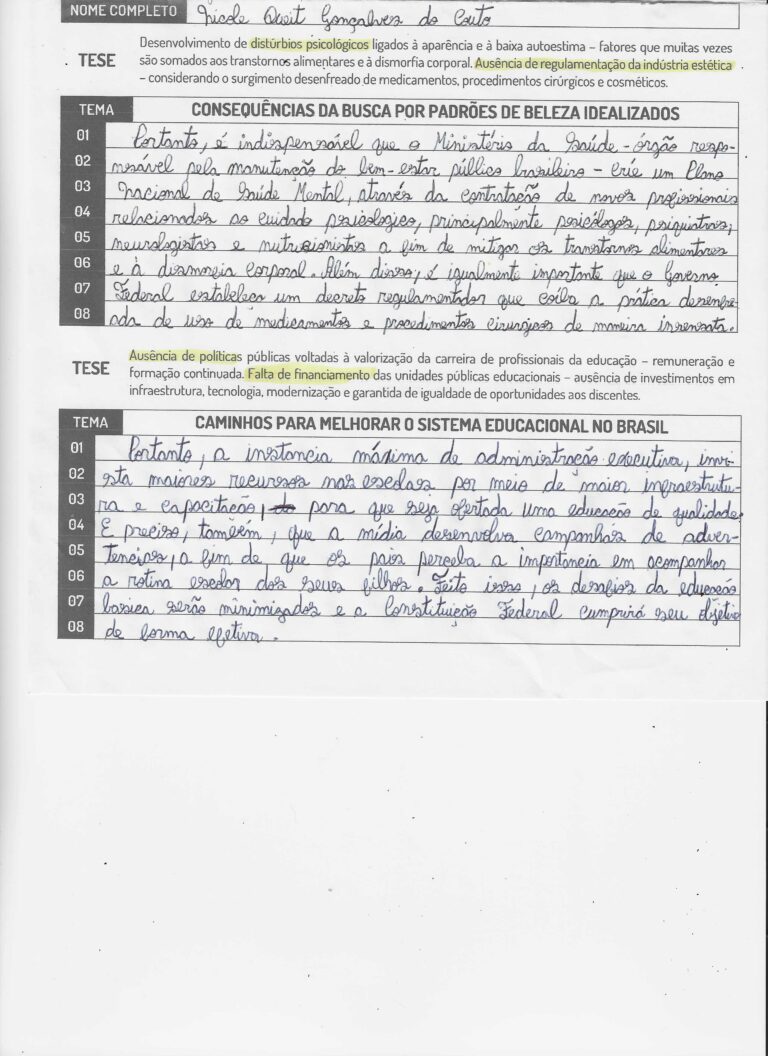 NOME COMPLETO Nicole Gonçalves do Couto
Desenvolvimento de distúrbios psicológicos ligados à aparência e à baixa autoestima – fatores que muitas vezes
TESE são somados aos transtornos alimentares e à dismorfia corporal. Ausência de regulamentação da indústria estética
– considerando o surgimento desenfreado de medicamentos, procedimentos cirúrgicos e cosméticos.
TEMA CONSEQUÊNCIAS DA BUSCA POR PADRÕES DE BELEZA IDEALIZADOS
01 Portanto, é indispensável que o Ministério da Saúde - órgão respo-
02 nsável pela manutenção do bem-estar público brasileiro - crie um Plano
03 Nacional de Saúde Mental, através da contratação de novos profissionais
04 relacionados ao cuidado psicologico, principalmente psicólogos, psiquiatras,
05 neurologistas e nutricionistas a fim de mitigar os transtornos alimentares
06 e à dismorcia corporal. Além disso, é igualmente importante que o Governo
07 Federal estabeleça um decreto regulamentador que coíba a prática desenfre-
08 ada de uso de medicamentos e procedimentos cirurgicos de maneira insensata.
Ausência de políticas públicas voltadas à valorização da carreira de profissionais da educação – remuneração e
TESE formação continuada. Falta de financiamento das unidades públicas educacionais – ausência de investimentos em
infraestrutura, tecnologia, modernização e garantida de igualdade de oportunidades aos discentes.
TEMA CAMINHOS PARA MELHORAR O SISTEMA EDUCACIONAL NO BRASIL
01 Portanto, a instancia máxima de administração executiva, invi-
02 sta maiores recursos nas escolas por meio de maior infraestrutu-
03 ra e capacitação, para que seja ofertada uma educação de qualidade.
04 É preciso, também, que a mídia desenvolva campanhas de adver-
05 tencias, a fim de que os pais perceba a importancia em acompanhar
06 a rotina escolar dos seus filhos. Feito isso, os desafios da educação
07 basica serão minimizados e a Constituição Federal cumprirá seu objetivo
08 de forma efetiva.